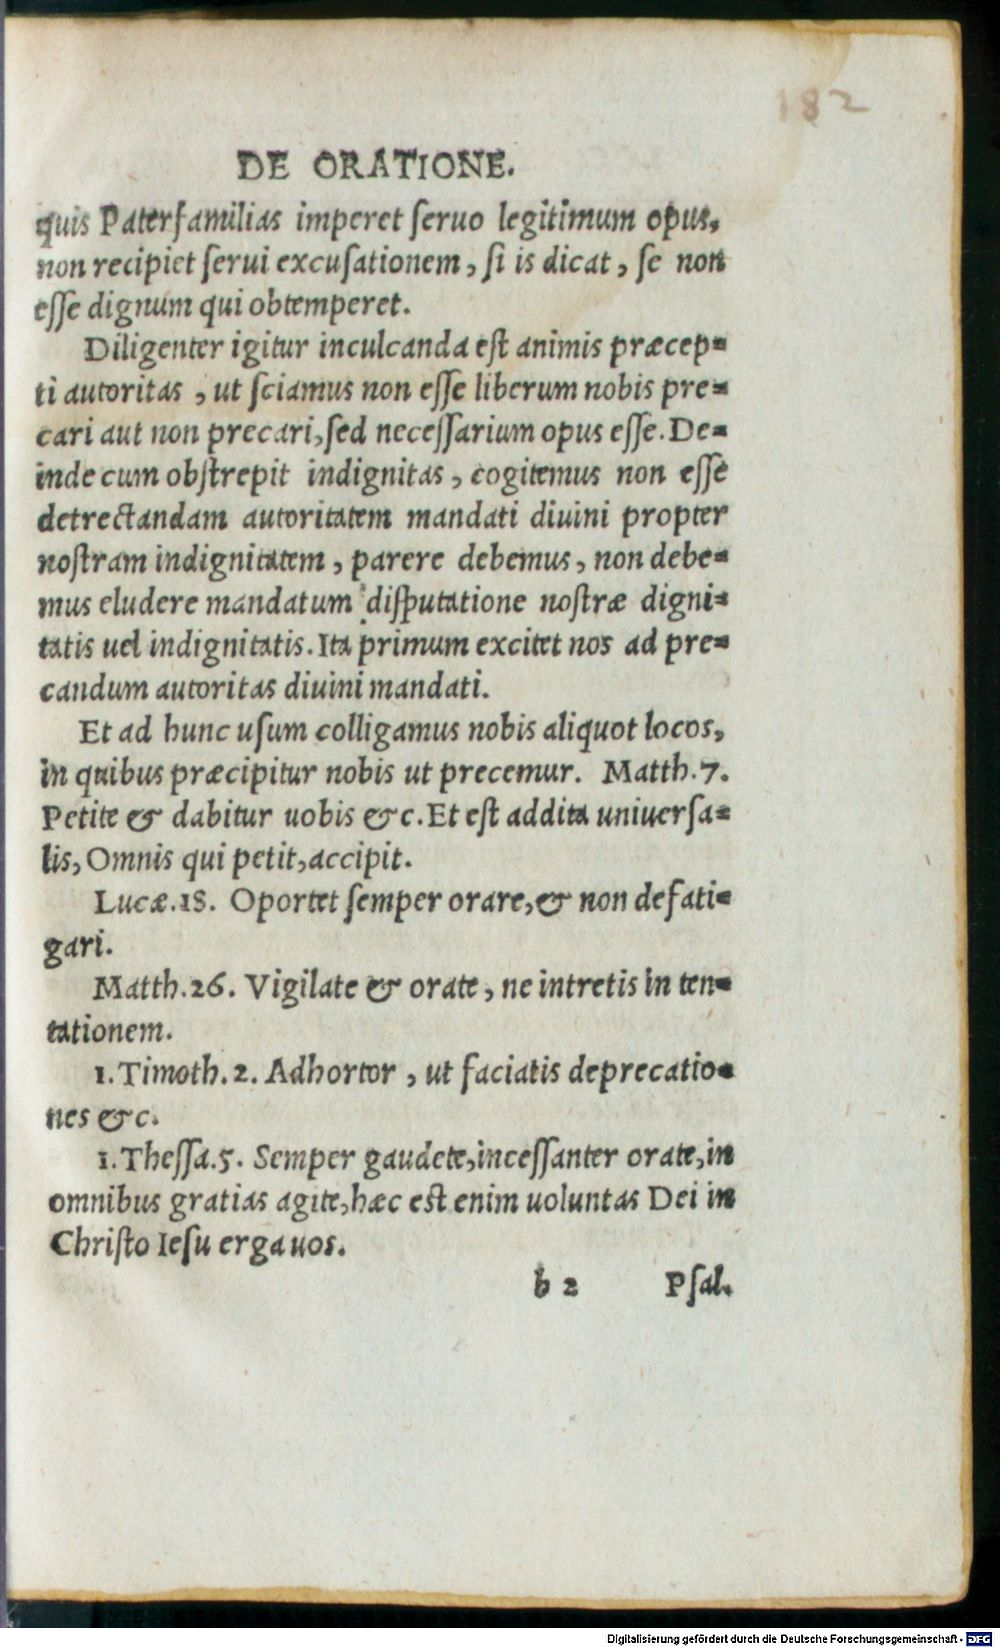 182
DE ORATIONE.
quis Paterfamilias imperet ſeruo legitimum opus,
non recipiet ſerui excuſationem, ſi is dicat, ſe non
eſſe dignum qui obtemperet.
Diligenter igitur inculcanda eſt animis præcep=
ti autoritas, ut ſciamus non eſſe liberum nobis pre=
cari aut non precari, ſed neceſſarium opus eſſe. De=
inde cum obſtrepit indignitas, cogitemus non eſſe
detrectandam autoritatem mandati diuini propter
noſtram indignitatem, parere debemus, non debe=
mus eludere mandatum diſputatione noſtræ digni=
tatis uel indignitatis. Ita primum excitet nos ad pre=
candum autoritas diuini mandati.
Et ad hunc uſum colligamus nobis aliquot locos,
in quibus præcipitur nobis ut precemur. Matth.7.
Petite & dabitur uobis &c. Et eſt addita uniuerſa=
lis, Omnis qui petit, accipit.
Lucæ.18. Oportet ſemper orare, & non defati=
gari.
Matth.26. Vigilate & orate, ne intretis in ten=
tationem.
1.Timoth.2. Adhortor, ut faciatis deprecatio=
nes &c.
1.Theſſa.5. Semper gaudete, inceſſanter orate, in
omnibus gratias agite, hæc eſt enim uoluntas Dei in
Chriſto Ieſu erga uos.
b 2 Pſal.
Digitalisierung gefördert durch die Deutsche Forschungsgemeinschaft - DFG